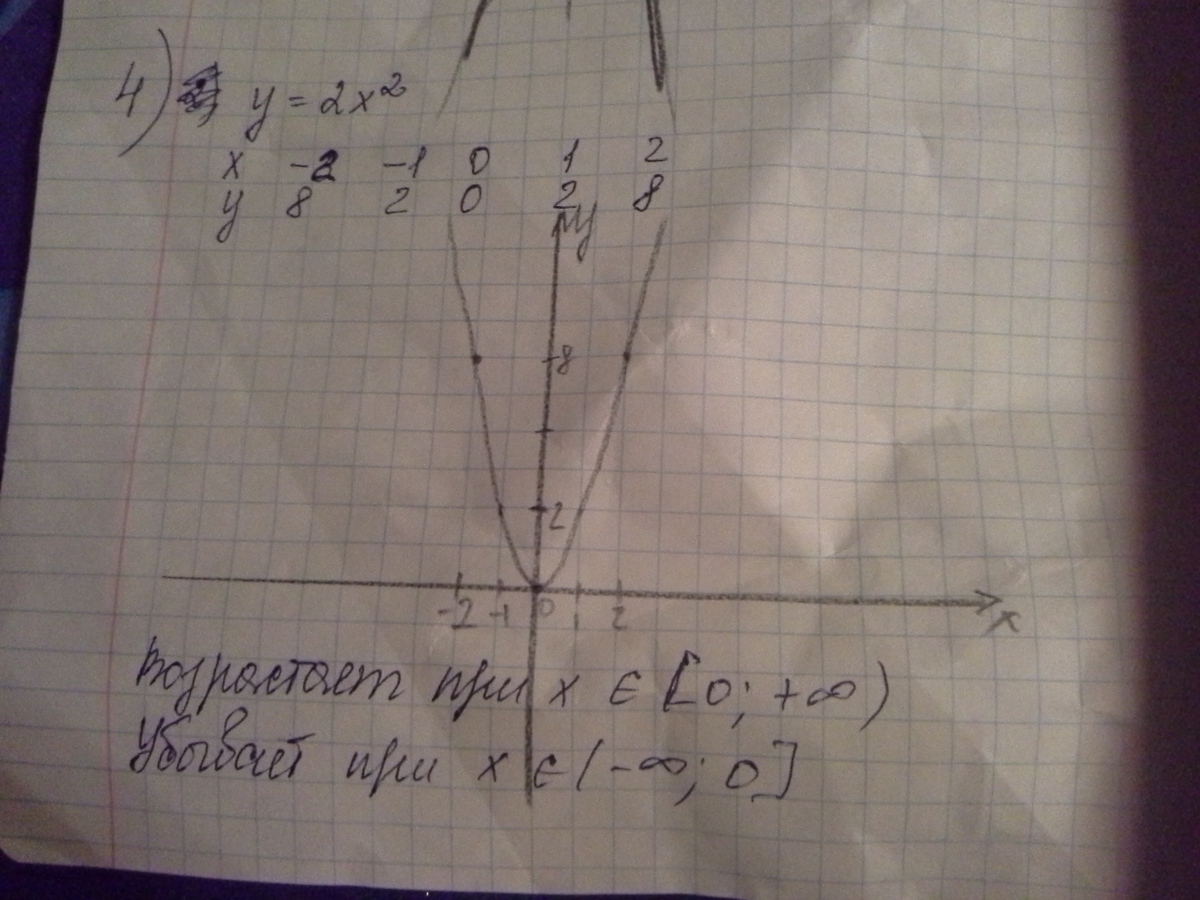 4) y = 2x²
x -2 -1 0 1 2
y 8 2 0 2 8
y
8
2
-2 -1 0 1 2 x
Возрастает при x ∈ [0; +∞)
Убывает при x ∈ (-∞; 0]